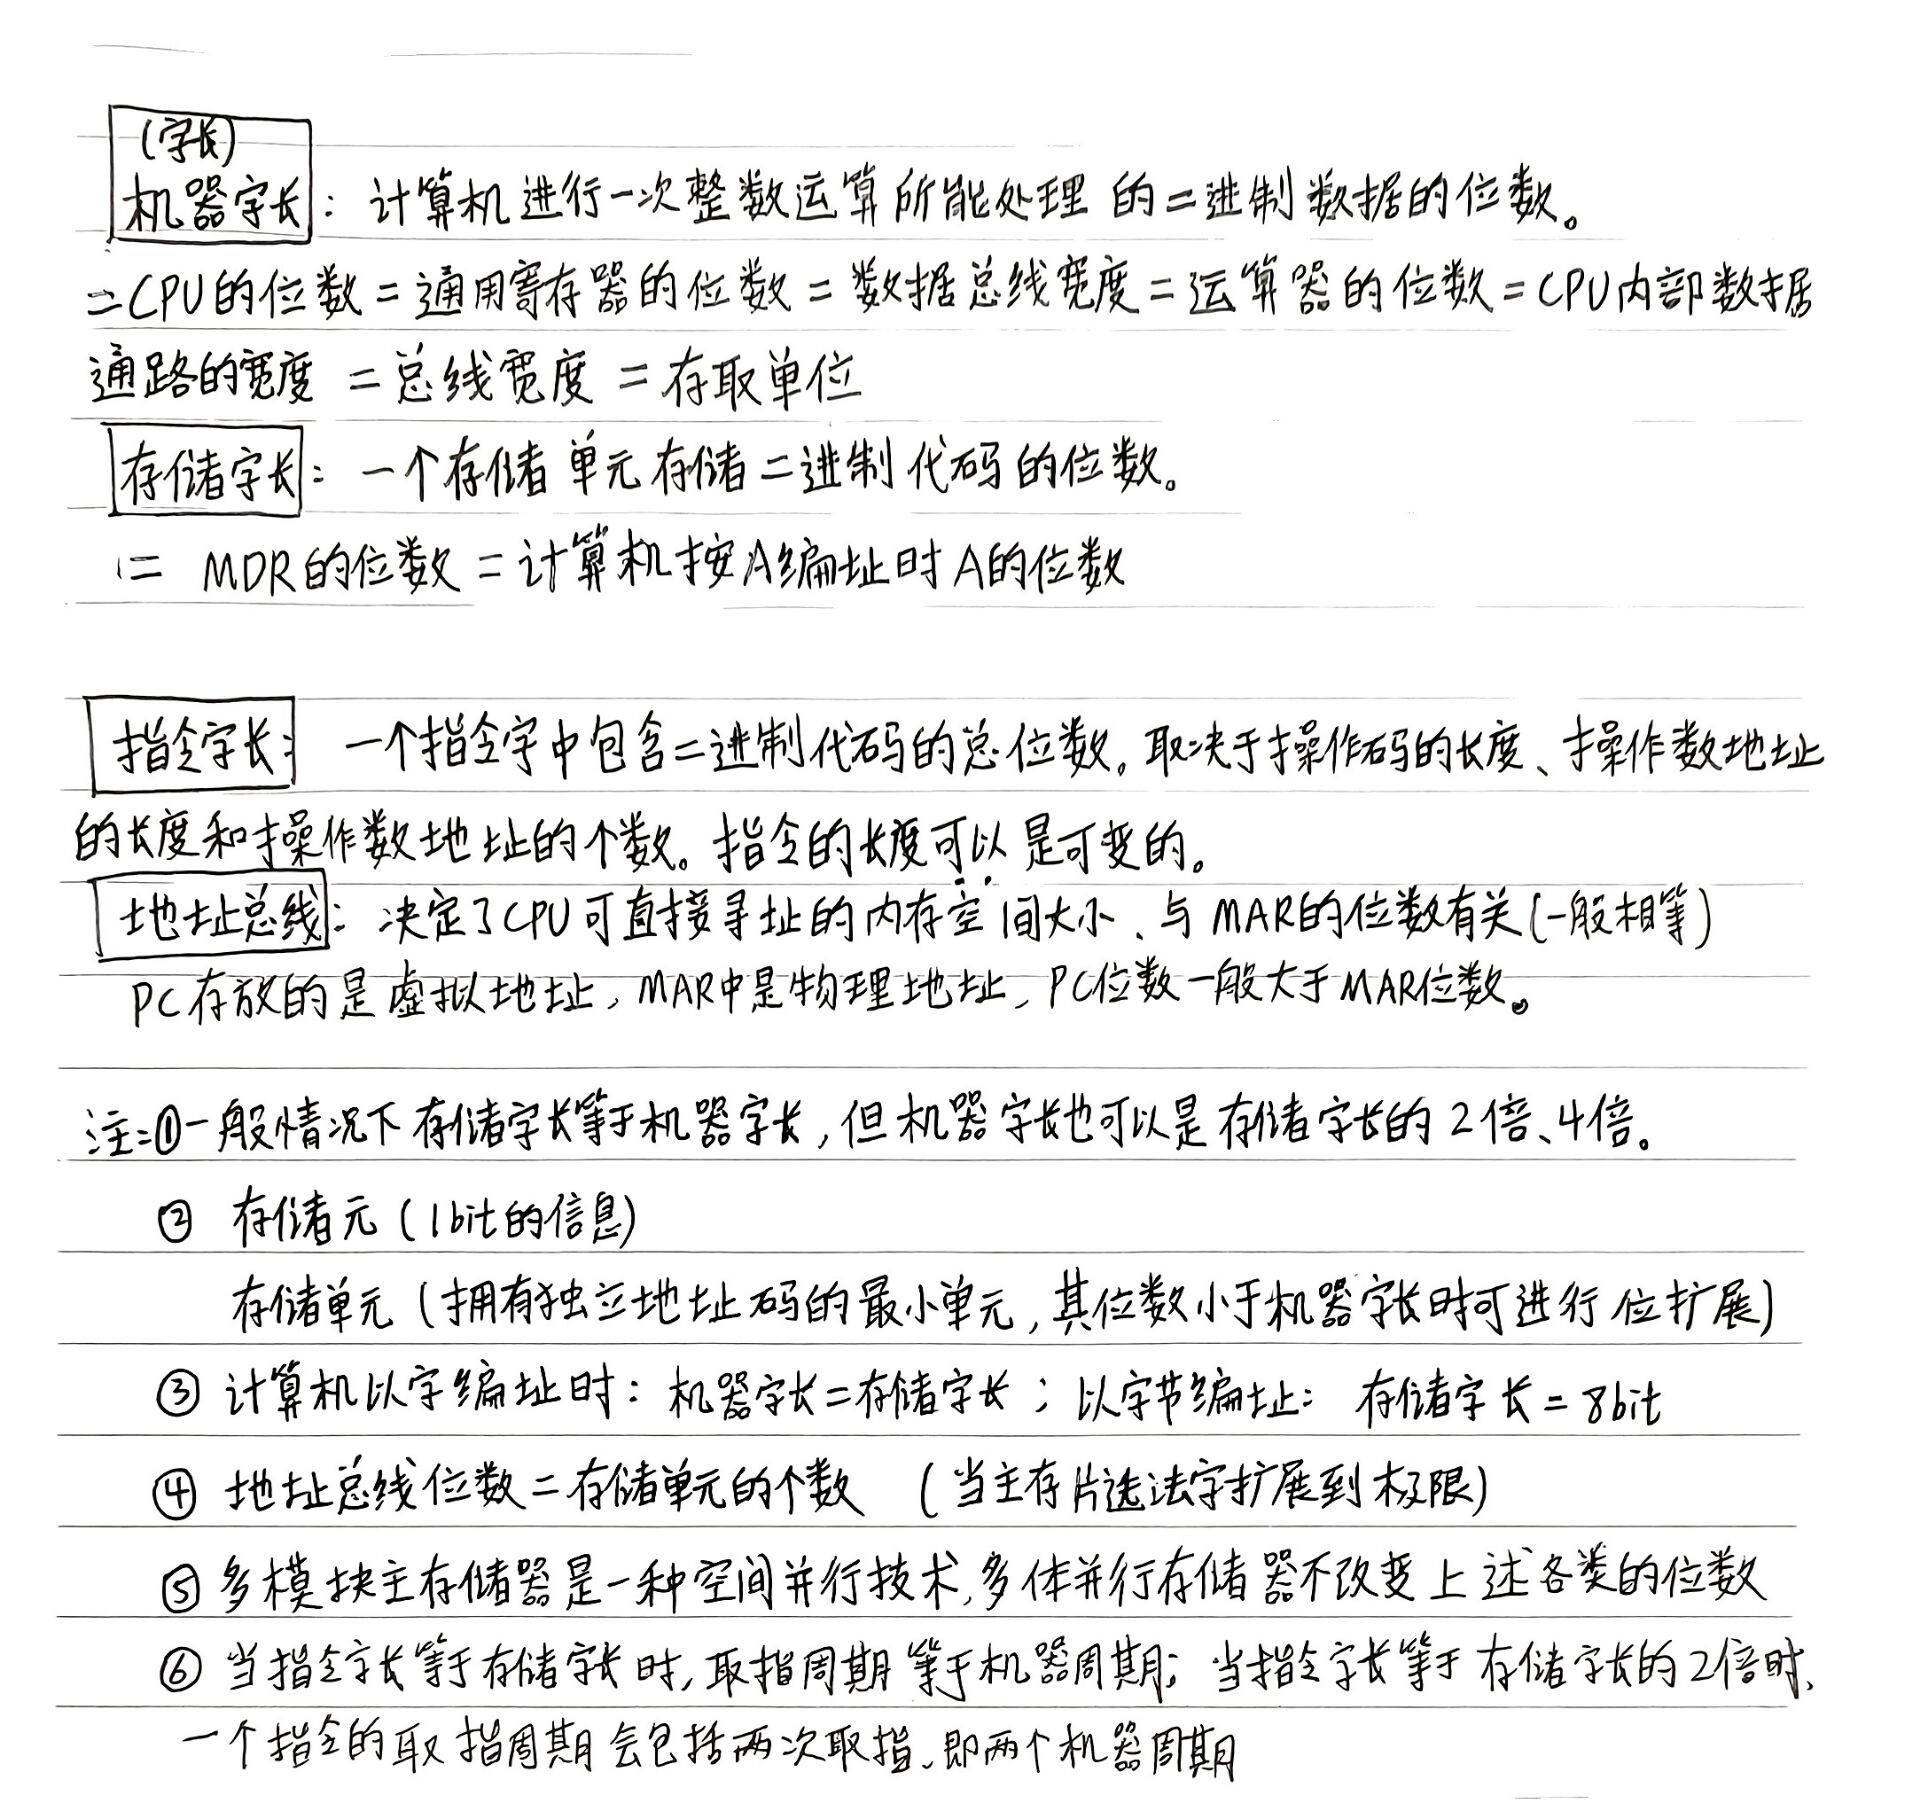 (字长)
机器字长：计算机进行一次整数运算所能处理的二进制数据的位数。
=CPU的位数=通用寄存器的位数=数据总线宽度=运算器的位数=CPU内部数据
通路的宽度 =总线宽度 =存取单位
存储字长：一个存储单元存储二进制代码的位数。
= MDR的位数=计算机按A编址时A的位数
指令字长：一个指令字中包含二进制代码的总位数。取决于操作码的长度、操作数地址
的长度和操作数地址的个数。指令的长度可以是可变的。
地址总线：决定了CPU可直接寻址的内存空间大小、与MAR的位数有关(一般相等)
PC存放的是虚拟地址，MAR中是物理地址，PC位数一般大于MAR位数。
注:①一般情况下存储字长等于机器字长，但机器字长也可以是存储字长的2倍、4倍。
② 存储元(1bit的信息)
存储单元(拥有独立地址码的最小单元，其位数小于机器字长时可进行位扩展)
③ 计算机以字编址时：机器字长=存储字长；以字节编址：存储字长=8bit
④ 地址总线位数=存储单元的个数 (当主存片选法字扩展到极限)
⑤ 多模块主存储器是一种空间并行技术，多体并行存储器不改变上述各类的位数
⑥ 当指令字长等于存储字长时，取指周期等于机器周期；当指令字长等于存储字长的2倍时、
一个指令的取指周期会包括两次取指、即两个机器周期